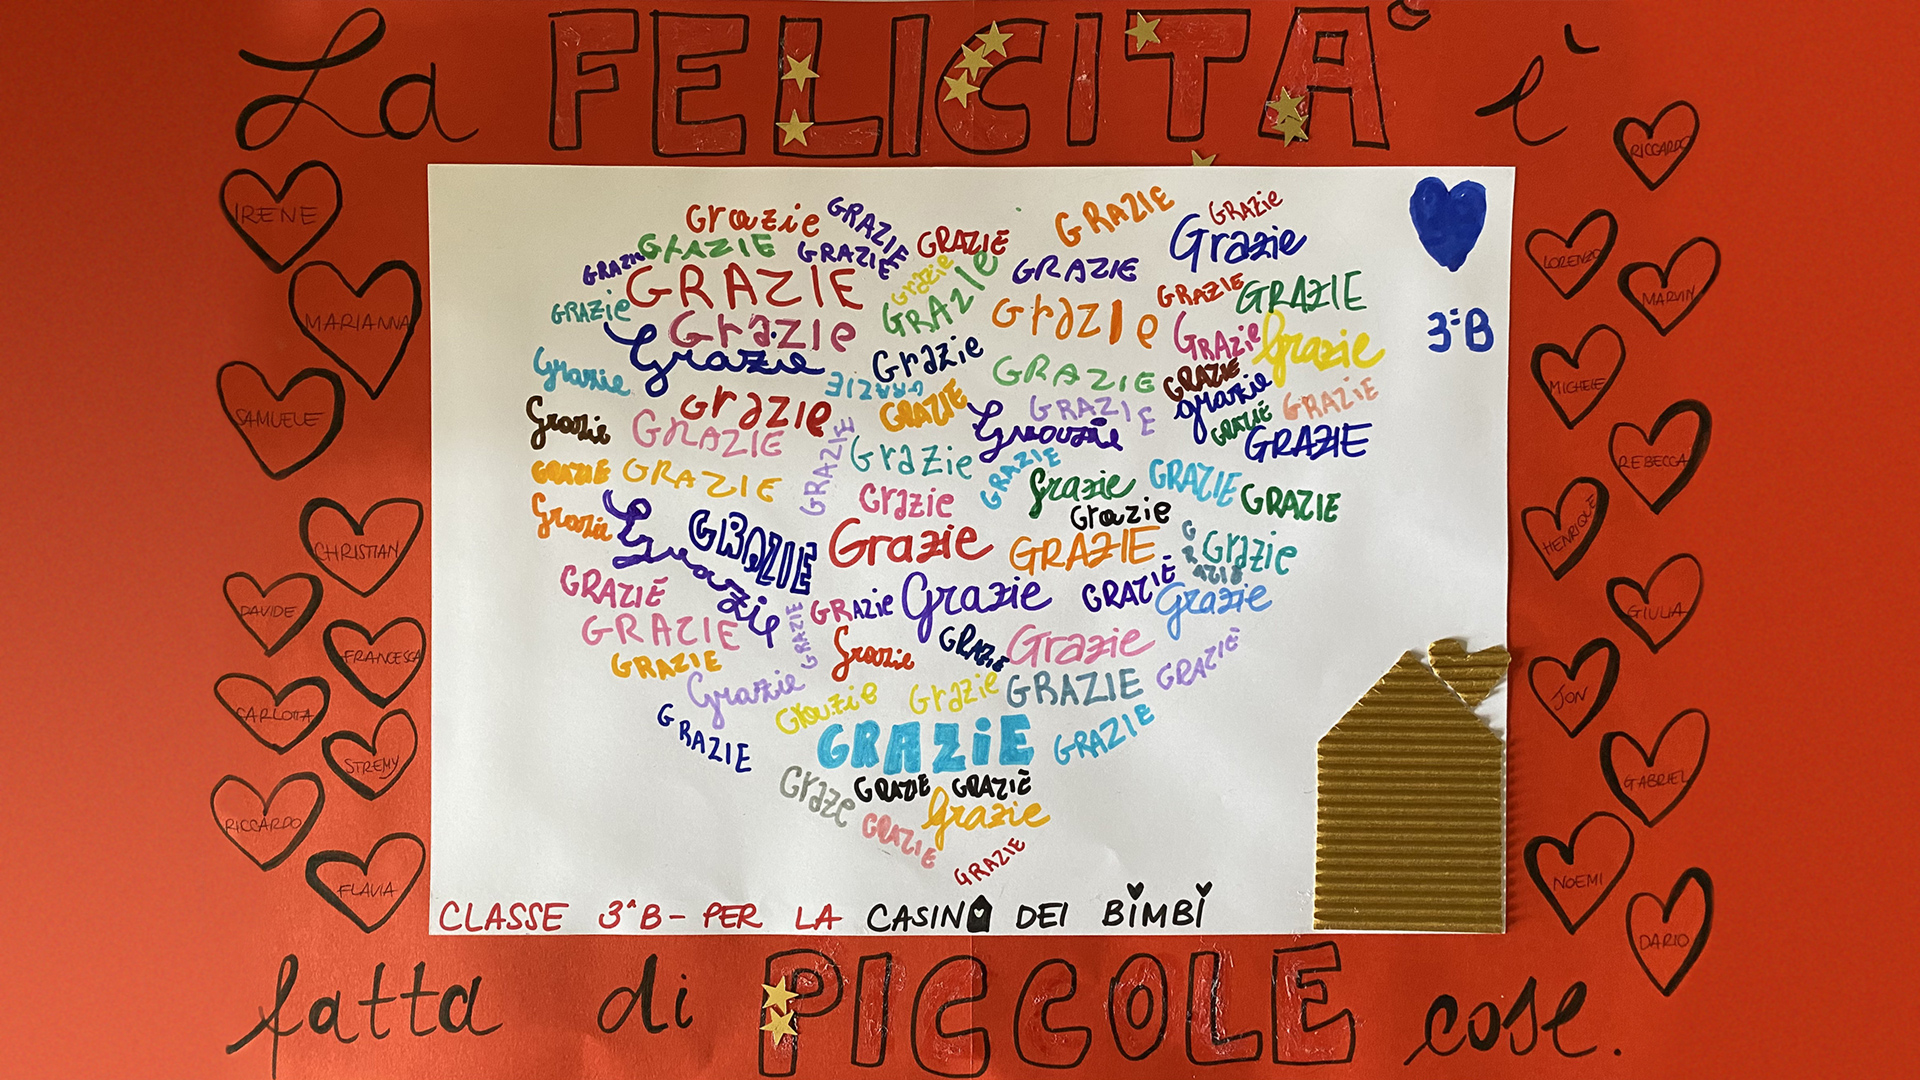 La FELICITA' è
IRENE
MARIANNA
SAMUELE
CHRISTIAN
DAVIDE
FRANCESCA
CARLOTTA
STREMY
RICCARDO
FLAVIA
Grazie GRAZIE GRAZIE GRAZIE
GRAZIE GRAZIE GRAZIE GRAZIE Grazie
GRAZIE GRAZIE Grazie GRAZIE GRAZIE GRAZIE
GRAZIE Grazie GRAZIE Grazie GRAZIE Grazie
Grazie Grazie Grazie GRAZIE GRAZIE
GRAZIE GRAZIE grazie GRAZIE
Grazie grazie GRAZIE Grazie GRAZIE GRAZIE GRAZIE
GRAZIE GRAZIE Grazie GRAZIE
GRAZIE GRAZIE Grazie GRAZIE Grazie GRAZIE GRAZIE
Grazie Grazie GRAZIE Grazie Grazie GRAZIE GRAZIE Grazie
GRAZIE GRAZIE Grazie GRAZIE Grazie
GRAZIE GRAZIE Grazie GRAZIE Grazie
GRAZIE Grazie Grazie Grazie GRAZIE GRAZIE
GRAZIE GRAZIE GRAZIE
Graze GRAZIE GRAZIE
GRAZIE Grazie
GRAZIE
3ªB
CLASSE 3ªB - PER LA CASINA DEI BIMBI
RICCARDO
LORENZO
MARVIN
MICHELE
REBECCA
HENRIQUE
GIULIA
JON
GABRIEL
NOEMI
DARIO
fatta di PICCOLE cose.